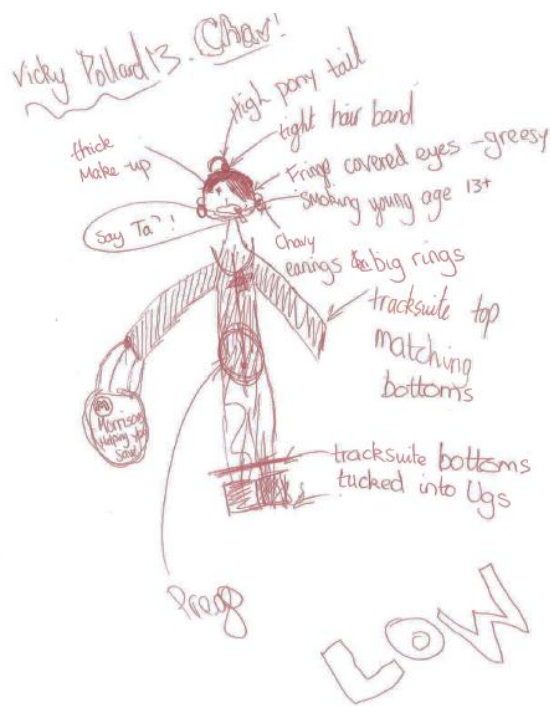 Vicky Pollard 13. Chav!
High pony tail
tight hair band
thick
make-up
Fringe covered eyes - greesy
Smoking young age 13+
Say Ta'!
Chavy
earings & big rings
tracksuite top
matching
bottoms
M
Morrisons
helping you
save
tracksuite bottoms
tucked into Ugs
Preg
LOW